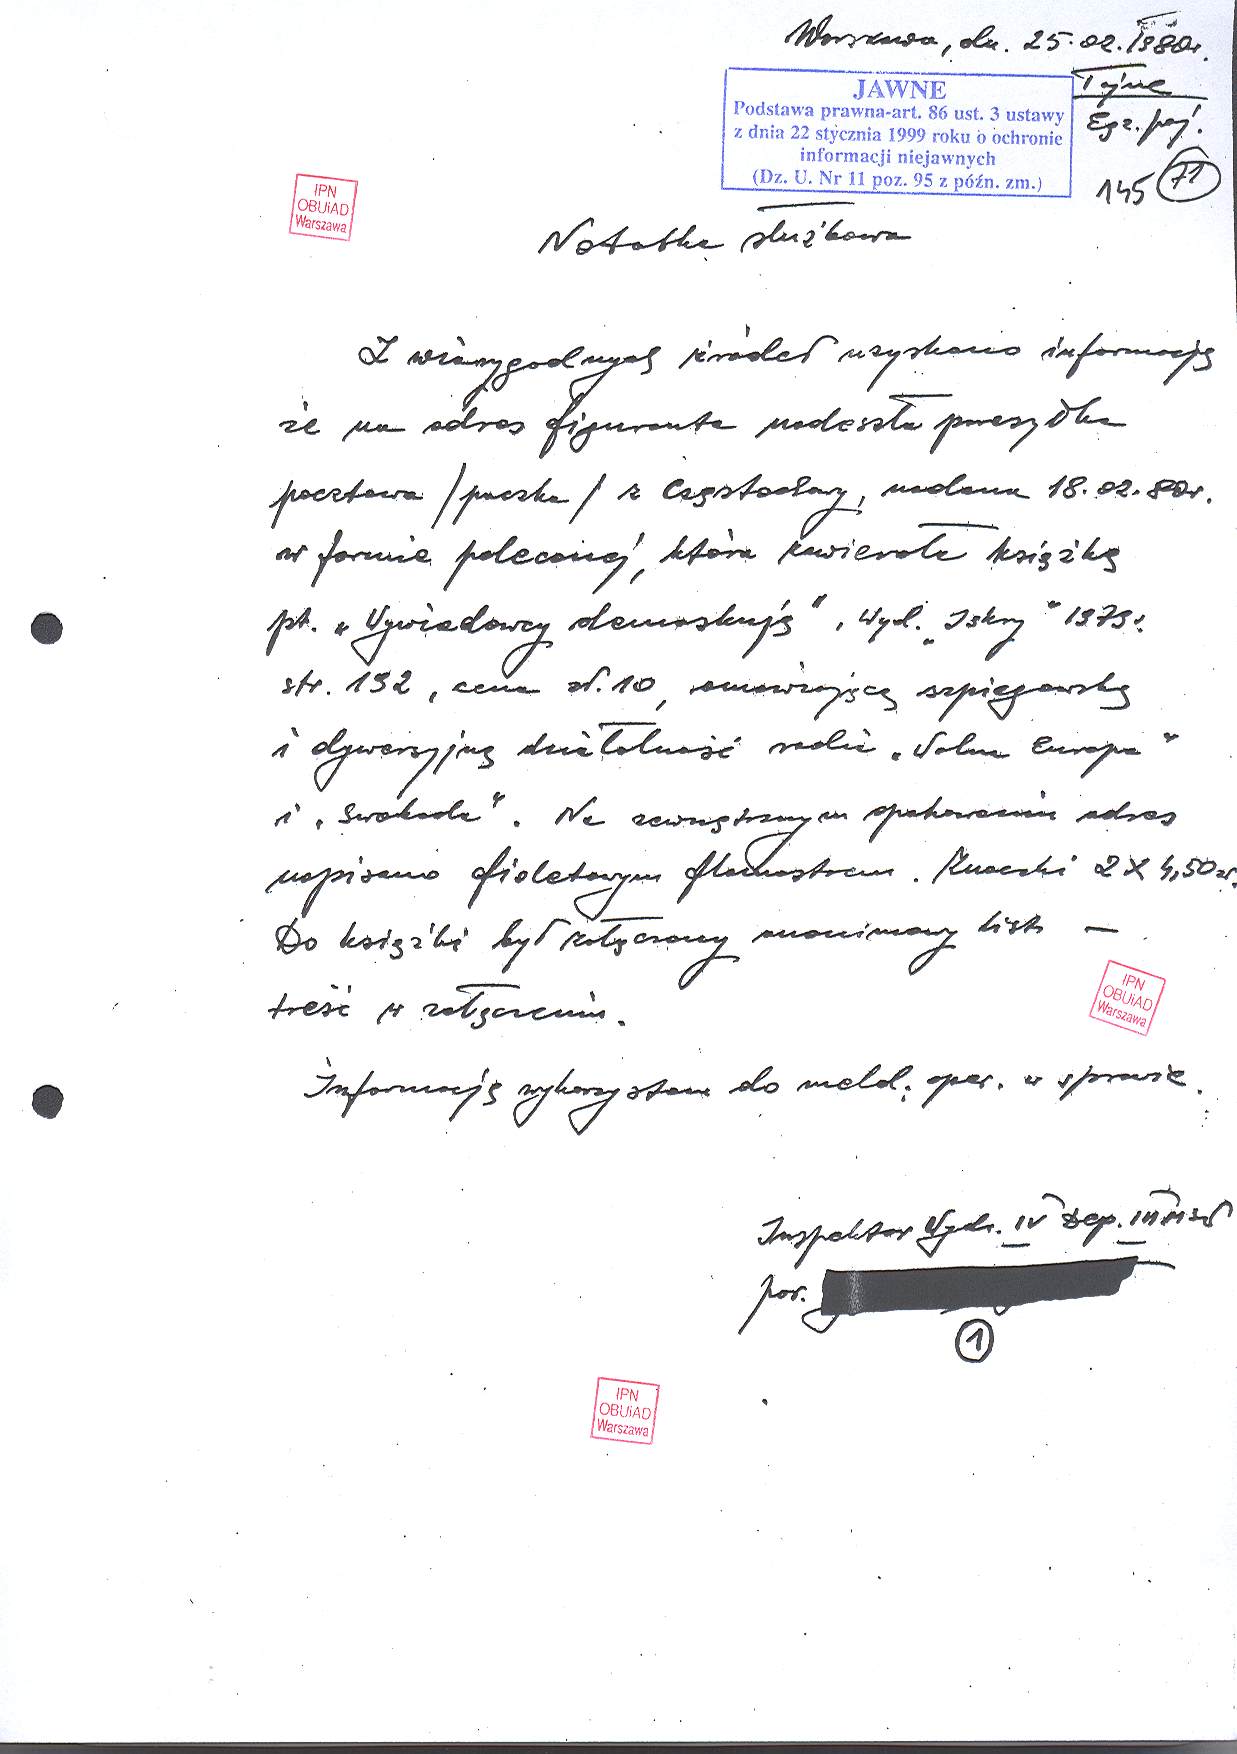 Warszawa, dn. 25.02.1980r.
Tajne
Egz. poj.
JAWNE
Podstawa prawna-art. 86 ust. 3 ustawy
z dnia 22 stycznia 1999 roku o ochronie
informacji niejawnych
(Dz. U. Nr 11 poz. 95 z późn. zm.)
145 71
IPN
OBUiAD
Warszawa
Notatka służbowa
Z wiarygodnych źródeł uzyskano informację
że na adres figuranta nadeszła przesyłka
pocztowa /paczka/ z Częstochowy, nadana 18.02.80r.
w formie poleconej, która zawierała książkę
pt. „Wywiadowcy demaskują", Wyd. „Iskry" 1979r.
str. 192, cena zł. 10, omawiającą szpiegowską
i dywersyjną działalność radia „Wolna Europa"
i „Swoboda". Na zewnętrznym opakowaniu adres
napisano fioletowym flamastrem. Znaczki 2 x 4,50 zł.
Do książki był załączony anonimowy list –
treść w załączeniu.
IPN
OBUiAD
Warszawa
Informację wykorzystano do meld. oper. w sprawie.
Inspektor Wydz. IV Dep. III MSW
por.
1
IPN
OBUiAD
Warszawa